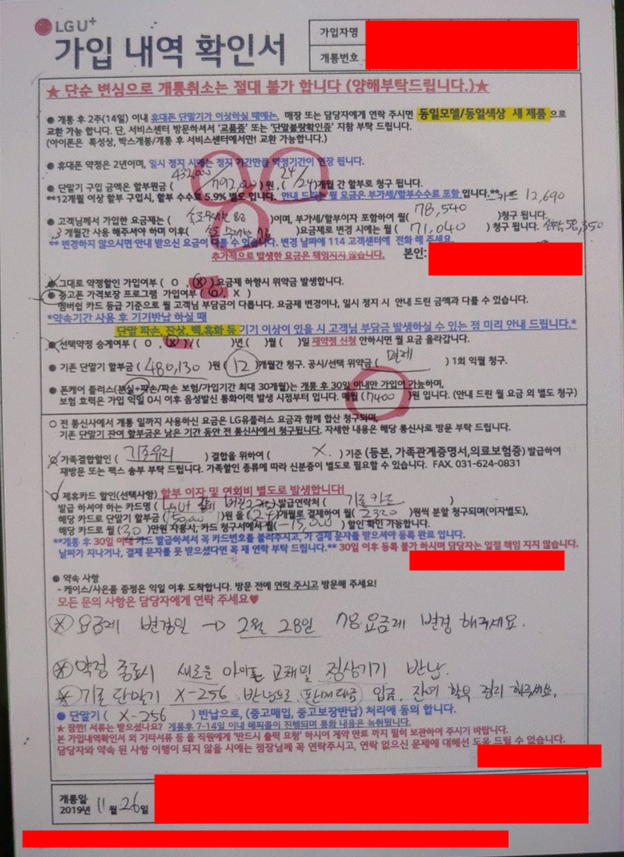 LG U+
가입 내역 확인서
가입자명
개통번호
★ 단순 변심으로 개통취소는 절대 불가 합니다 (양해부탁드립니다.)★
● 개통 후 2주(14일) 이내 휴대폰 단말기가 이상하실 때에는, 매장 또는 담당자에게 연락 주시면 동일모델/동일색상 새 제품 으로
교환 가능 합니다. 단, 서비스센터 방문하셔서 '교품증' 또는 '단말불량확인증' 지참 부탁 드립니다.
(아이폰은 특성상, 박스개봉/개통 후 서비스센터에서만! 교환 가능합니다.)
● 휴대폰 약정은 2년이며, 일시 정지 시에는 정지 기간만큼 약정기간이 연장 됩니다.
432,000
● 단말기 구입 금액은 할부원금 ( /792,000 ) 원, ( 24/24 )개월 간 할부로 청구 됩니다.
**12개월 이상 할부 구입시, 할부 수수료 5.9% 별도 입니다. 안내 드리는 월 요금은 부가세/할부수수료 포함 입니다.** 카드 12,690
● 고객님께서 가입한 요금제는 ( 88 )이며, 부가세/할부이자 포함하여 월( 78,540 )청구 됩니다.
3 개월간 사용 해주셔야 하며 이후( 78 )요금제로 변경 시에는 월( 71,040 ) 청구 됩니다. 58,350
** 변경하지 않으시면 안내 받으신 요금이 다를 수 있습니다. 변경 날짜에 114 고객센터에 전화 해 주세요.
추가적으로 발생한 요금은 책임지지 않습니다. 본인:
● 그대로 약정할인 가입여부 ( O , X ) 요금제 하향시 위약금 발생합니다.
● 중고폰 가격보장 프로그램 가입여부 ( O , X )
멤버쉽 카드 등급 기준으로 월 고객님 부담금이 다릅니다. 요금제 변경이나, 일시 정지 시 안내 드린 금액과 다를 수 있습니다.
*약속기간 사용 후 기기반납 하실 때
단말 파손, 잔상, 백,흑화 등 기기 이상이 있을 시 고객님 부담금 발생하실 수 있는 점 미리 안내 드립니다.*
● 선택약정 승계여부 ( O , X ) / ( )년 ( )월 ( )일 재약정 신청 안하시면 월 요금 올라갑니다.
● 기존 단말기 할부금 ( 480,130 ) 원 ( 12 )개월간 청구. 공시/선택 위약금 ( 면제 ) 1회 익월 청구.
● 폰케어 플러스(분실+파손/파손 보험/가입기간 최대 30개월)는 개통 후 30일 이내만 가입이 가능하며,
보험 효력은 가입 익일 0시 이후 음성발신 통화이력 발생 시점부터 입니다. 매월 (7400)원 입니다. (안내 드린 월 요금 외 별도 청구)
○ 전 통신사에서 개통 일까지 사용하신 요금은 LG유플러스 요금과 함께 합산 청구되며,
기존 단말기 잔여 할부금은 남은 기간 동안 전 통신사에서 청구됩니다. 자세한 내용은 해당 통신사로 방문 부탁 드립니다.
● 가족결합할인 ( 기존유지 ) 결합을 위하여 ( X. ) 기준 (등본, 가족관계증명서,의료보험증) 발급하여
재방문 또는 팩스 송부 부탁 드립니다. 가족할인 종류에 따라 신분증이 별도로 필요할 수 있습니다. FAX 031-624-0831
● 제휴카드 할인(선택사항) 할부 이자 및 연회비 별도로 발생합니다!
발급 하셔야 하는 카드명 ( LGU+ ) 발급연락처 ( 기존카드 )
해당 카드로 단말기 할부금 ( ) 원 을 (24)개월로 결제하며 월( 2320 )원씩 분할 청구되며(이자별도),
해당 카드로 월 (30)만원 사용시, 카드 청구서에서 월( -15,000 ) 할인 확인 가능합니다.
**개통 후 30일 이내 카드 발급하셔서 꼭 카드번호를 불러주시고, 가 결제 문자를 받으셔야 등록 완료 입니다.
날짜가 지나거나, 결제 문자를 못 받으셨다면 꼭 재 연락 부탁 드립니다.** 30일 이후 등록 불가 하시며 담당자는 일절 책임 지지 않습니다.
● 약속 사항
- 케이스/사은품 증정은 익일 이후 도착합니다. 방문 전에 연락 주시고 방문해 주세요!
모든 문의 사항은 담당자에게 연락 주세요♥
※ 요금제 변경일 → 2월 28일 78 요금제 변경 해주세요.
※ 약정 종료시 새로운 아이폰 교체 및 정상기기 반납.
※ 기존 단말기 X-256 반납으로 입금. 잔여 할부 정리 해주세요.
● 단말기 ( X-256 ) 반납으로, (중고매입, 중고보장반납) 처리에 동의 합니다.
★ 잠깐! 서류는 받으셨나요? 개통후 7-14일 이내 해피콜이 진행되며 통화 내용은 녹취됩니다.
본 가입내역확인서 외 기타서류 등 을 직원에게 '반드시 출력 요청' 하시어 계약 만료 까지 필히 보관하여 주시기 바랍니다.
담당자와 약속 된 사항 이행이 되지 않을 시에는 점장님께 꼭 연락주시고, 연락 없으신 문제에 대해선 도움 드릴 수 없습니다.
개통일
2019년 11월 26일